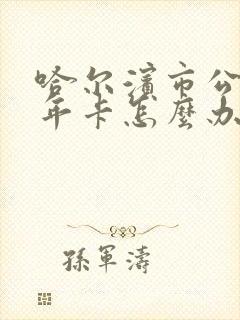 哈尔濱市公
年卡怎麼办
孫軍濤